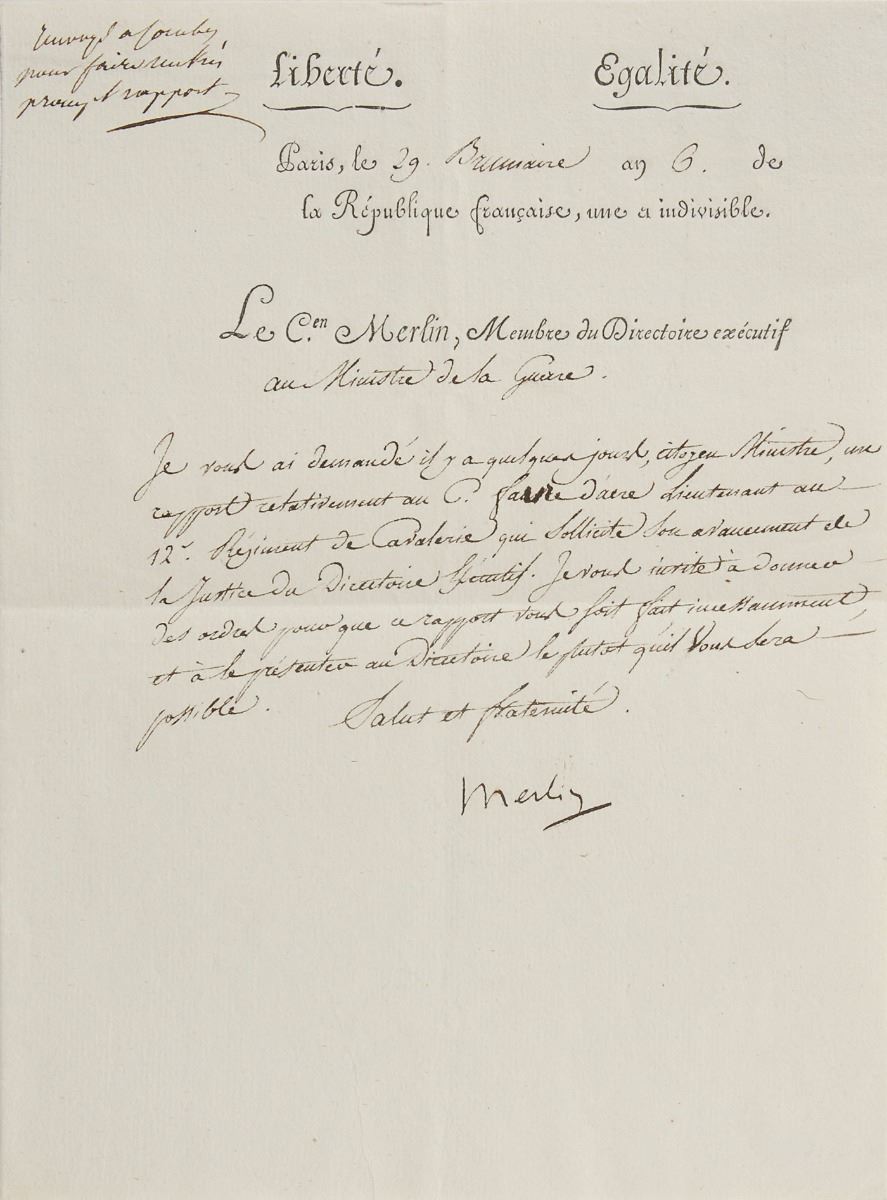 Renvoyé a
pour faire
prompt rapport
Liberté. Egalité.
Paris, le 29. Brumaire an 6. de
la République française, une et indivisible.
Le C.en Merlin, Membre du Directoire exécutif
au Ministre de la Guerre.
Je vous ai demandé il y a quelques jours, citoyen Ministre, un
rapport relativement au C. Lieutenant au
12e. Régiment de Cavalerie qui Sollicite Son avancement de
la Justice du Directoire Exécutif. Je vous invite à donner
des ordres pour que ce rapport vous soit fait incessamment,
et à le présenter au Directoire le plutot qu'il Vous Sera
possible.
Salut et fraternité.
Merlin